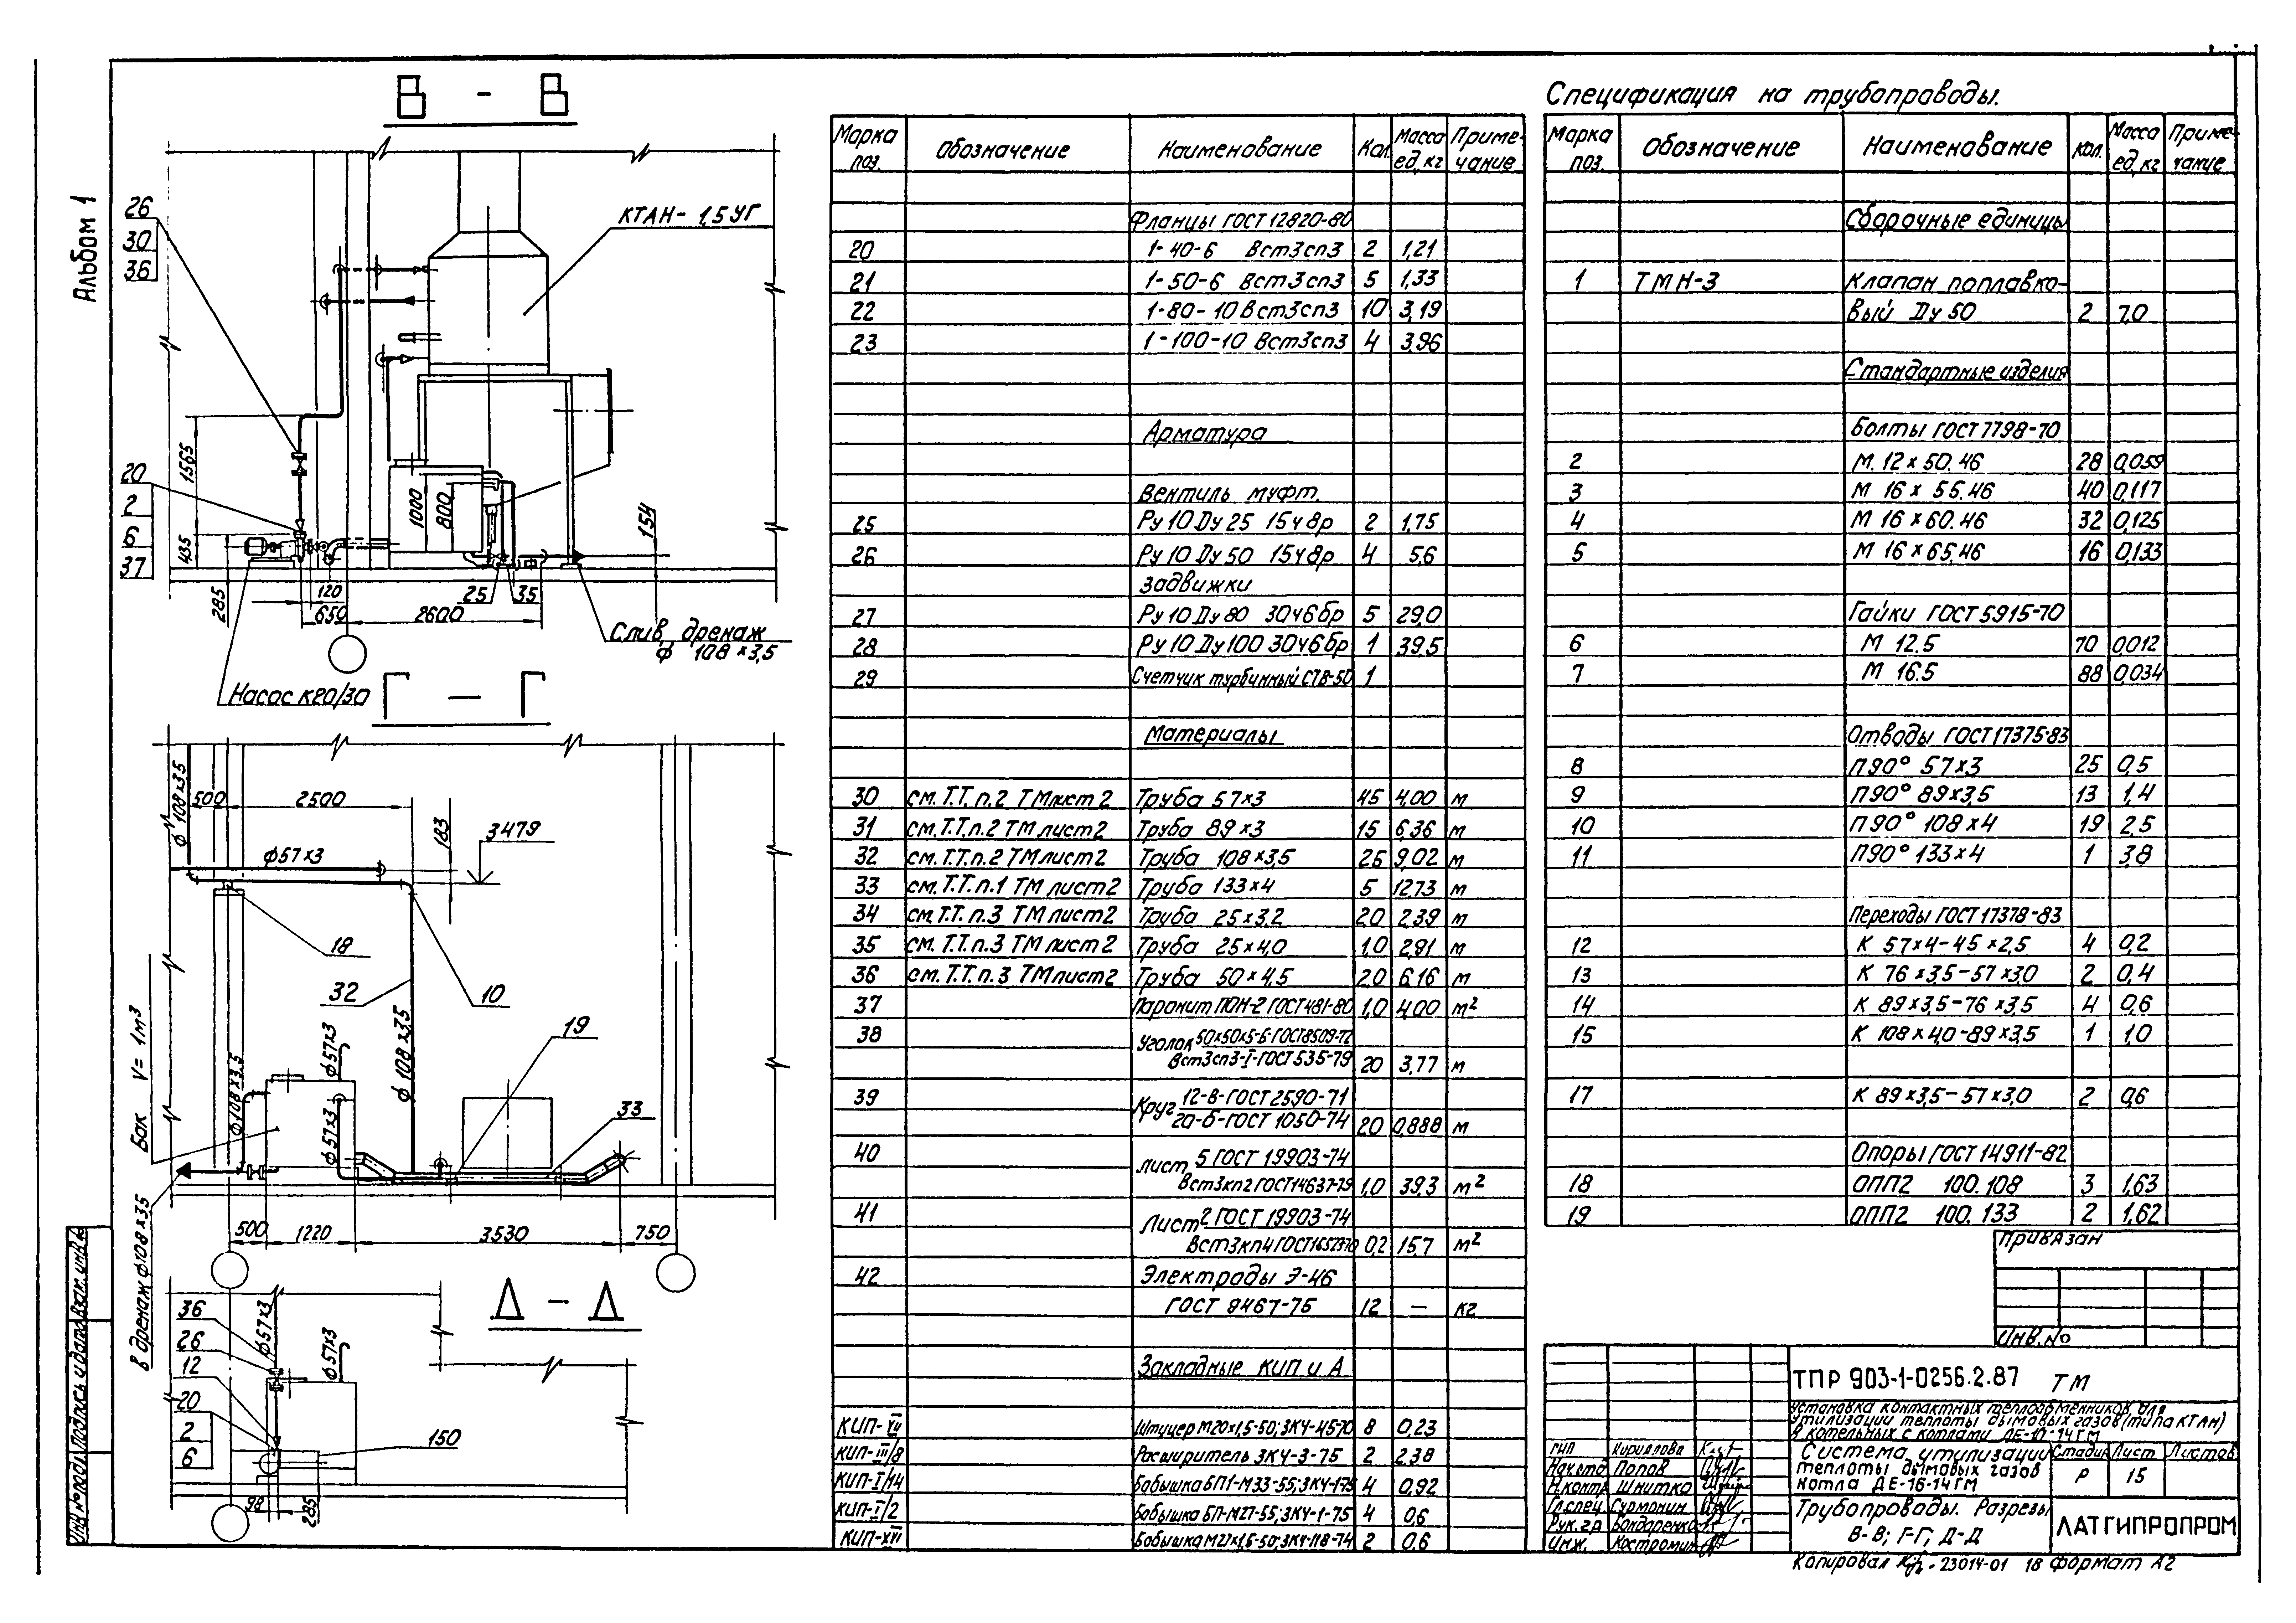 Альбом 1
В - В
26
30
36
КТАН- 1,5УГ
20
2
6
37
1565
435
285
120
650
2600
1000
800
25
35
154
Слив, дренаж
ф 108×3,5
Насос К20/30
Г - Г
ф 108×3,5
500
2500
183
3479
ф57×3
18
32
10
ф 108×3,5
19
33
Бак V= 1м³
ф108×3,5
ф57×3
ф57×3
в дренаж ф108×3,5
500
1220
3530
750
Д - Д
36
26
12
20
2
6
ф57×3
ф57×3
150
98
285
Марка поз. Обозначение Наименование Кол. Масса ед, кг Приме-чание
Фланцы ГОСТ 12820-80
20 1-40-6 Вст3сп3 2 1,21
21 1-50-6 Вст3сп3 5 1,33
22 1-80-10 Вст3сп3 10 3,19
23 1-100-10 Вст3сп3 4 3,96
Арматура
Вентиль муфт.
25 Ру 10 Ду 25 15ч8р 2 1,75
26 Ру 10 Ду 50 15ч8р 4 5,6
Задвижки
27 Ру 10 Ду 80 30ч6бр 5 29,0
28 Ру 10 Ду100 30ч6бр 1 39,5
29 Счетчик турбинный СТВ-50 1
Материалы
30 см. Т.Т. п.2 ТМ лист 2 Труба 57×3 45 4,00 м
31 см. Т.Т. п.2 ТМ лист 2 Труба 89×3 15 6,36 м
32 см. Т.Т. п.2 ТМ лист 2 Труба 108×3,5 25 9,02 м
33 см. Т.Т. п.1 ТМ лист 2 Труба 133×4 5 12,73 м
34 см. Т.Т. п.3 ТМ лист 2 Труба 25×3,2 20 2,39 м
35 см. Т.Т. п.3 ТМ лист 2 Труба 25×4,0 1,0 2,91 м
36 см. Т.Т. п.3 ТМ лист 2 Труба 50×4,5 2,0 6,16 м
37 Паронит ПОН-2 ГОСТ 481-80 1,0 4,00 м²
38 Уголок 50×50×5-Б-ГОСТ8509-72
Вст3сп3-I-ГОСТ 535-79 20 3,77 м
39 Круг 12-В-ГОСТ 2590-71
20-б-ГОСТ 1050-74 20 0,888 м
40 Лист 5 ГОСТ 19903-74
Вст3кп2 ГОСТ14637-79 1,0 39,3 м²
41 Лист 2 ГОСТ 19903-74
Вст3кп4 ГОСТ16523-70 0,2 15,7 м²
42 Электроды Э-46
ГОСТ 9467-75 12 — кг
Закладные КИП и А
КИП-VI Штуцер М20×1,5-50; ЗКЧ-45-70 8 0,23
КИП-III/8 Расширитель ЗКЧ-3-75 2 2,38
КИП-I/14 Бобышка БП1-М33-55; ЗКЧ-1-75 4 0,92
КИП-I/2 Бобышка БП-М27-55; ЗКЧ-1-75 4 0,6
КИП-XII Бобышка М27×1,5-50; ЗКЧ-118-74 2 0,6
Спецификация на трубопроводы.
Марка поз. Обозначение Наименование Кол. Масса ед, кг Приме-чание
Сборочные единицы
1 ТМН-3 Клапан поплавко-
вый Ду 50 2 7,0
Стандартные изделия
Болты ГОСТ 7798-70
2 М. 12×50. 46 28 0,059
3 М 16×55. 46 40 0,117
4 М 16×60. 46 32 0,125
5 М 16×65. 46 16 0,133
Гайки ГОСТ 5915-70
6 М 12. 5 70 0,012
7 М 16.5 88 0,034
Отводы ГОСТ 17375-83
8 П90° 57×3 25 0,5
9 П90° 89×3,5 13 1,4
10 П90° 108×4 19 2,5
11 П90° 133×4 1 3,8
Переходы ГОСТ 17378-83
12 К 57×4-45×2,5 4 0,2
13 К 76×3,5-57×3,0 2 0,4
14 К 89×3,5-76×3,5 4 0,6
15 К 108×4,0-89×3,5 1 1,0
17 К 89×3,5-57×3,0 2 0,6
Опоры ГОСТ 14911-82
18 ОПП2 100. 108 3 1,63
19 ОПП2 100. 133 2 1,62
Привязан
Инв. №
ТПР 903-1-0256.2.87 ТМ
Установка контактных теплообменников для
утилизации теплоты дымовых газов (типа КТАН)
в котельных с котлами ДЕ-10-14ГМ
Система утилизации
теплоты дымовых газов
котла ДЕ-16-14ГМ
Стадия Лист Листов
Р 15
Трубопроводы. Разрезы
В-В; Г-Г; Д-Д
ЛАТГИПРОПРОМ
ГИП Кириллова
Нач.отд Попов
Н.контр Шнитко
Гл.спец. Сурмонин
Рук.гр. Бондаренко
Инж. Костромин
Копировал 23014-01 18 Формат А2
Инв № подл. Подпись и дата Взам. инв №